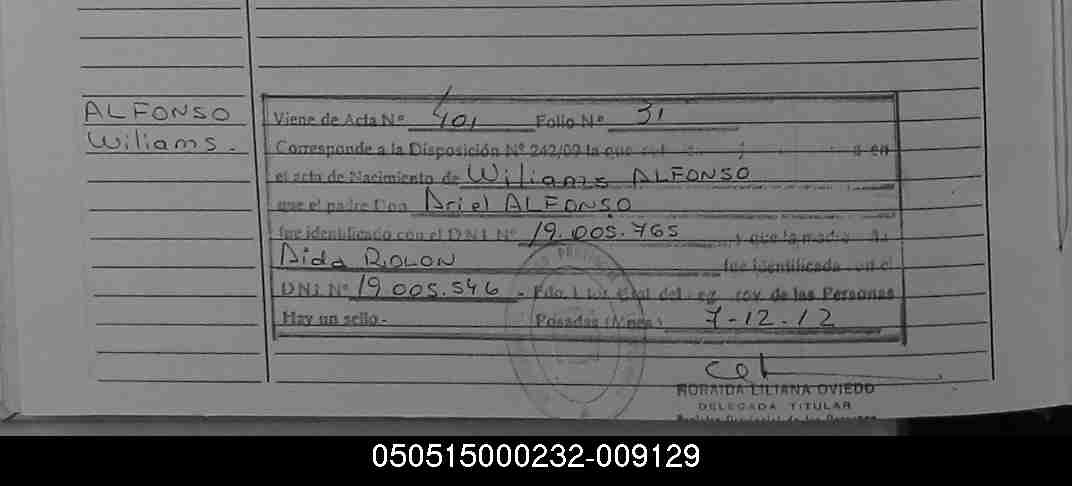 ALFONSO
Wiliams.
Viene de Acta Nº 401 Folio Nº 31
Corresponde a la Disposición Nº 242/09 la que en
el acta de Nacimiento de Wiliams ALFONSO
que el padre Don Ariel ALFONSO
fue identificado con el DNI Nº 19.005.765 y que la madre
Aida ROLON fue identificada en el
DNI Nº 19.005.546 - Fdo. de las Personas
Hay un sello.- Posadas (Mnes.) 7-12-12
NORAIDA LILIANA OVIEDO
DELEGADA TITULAR
Registro Provincial de las Personas
050515000232-009129